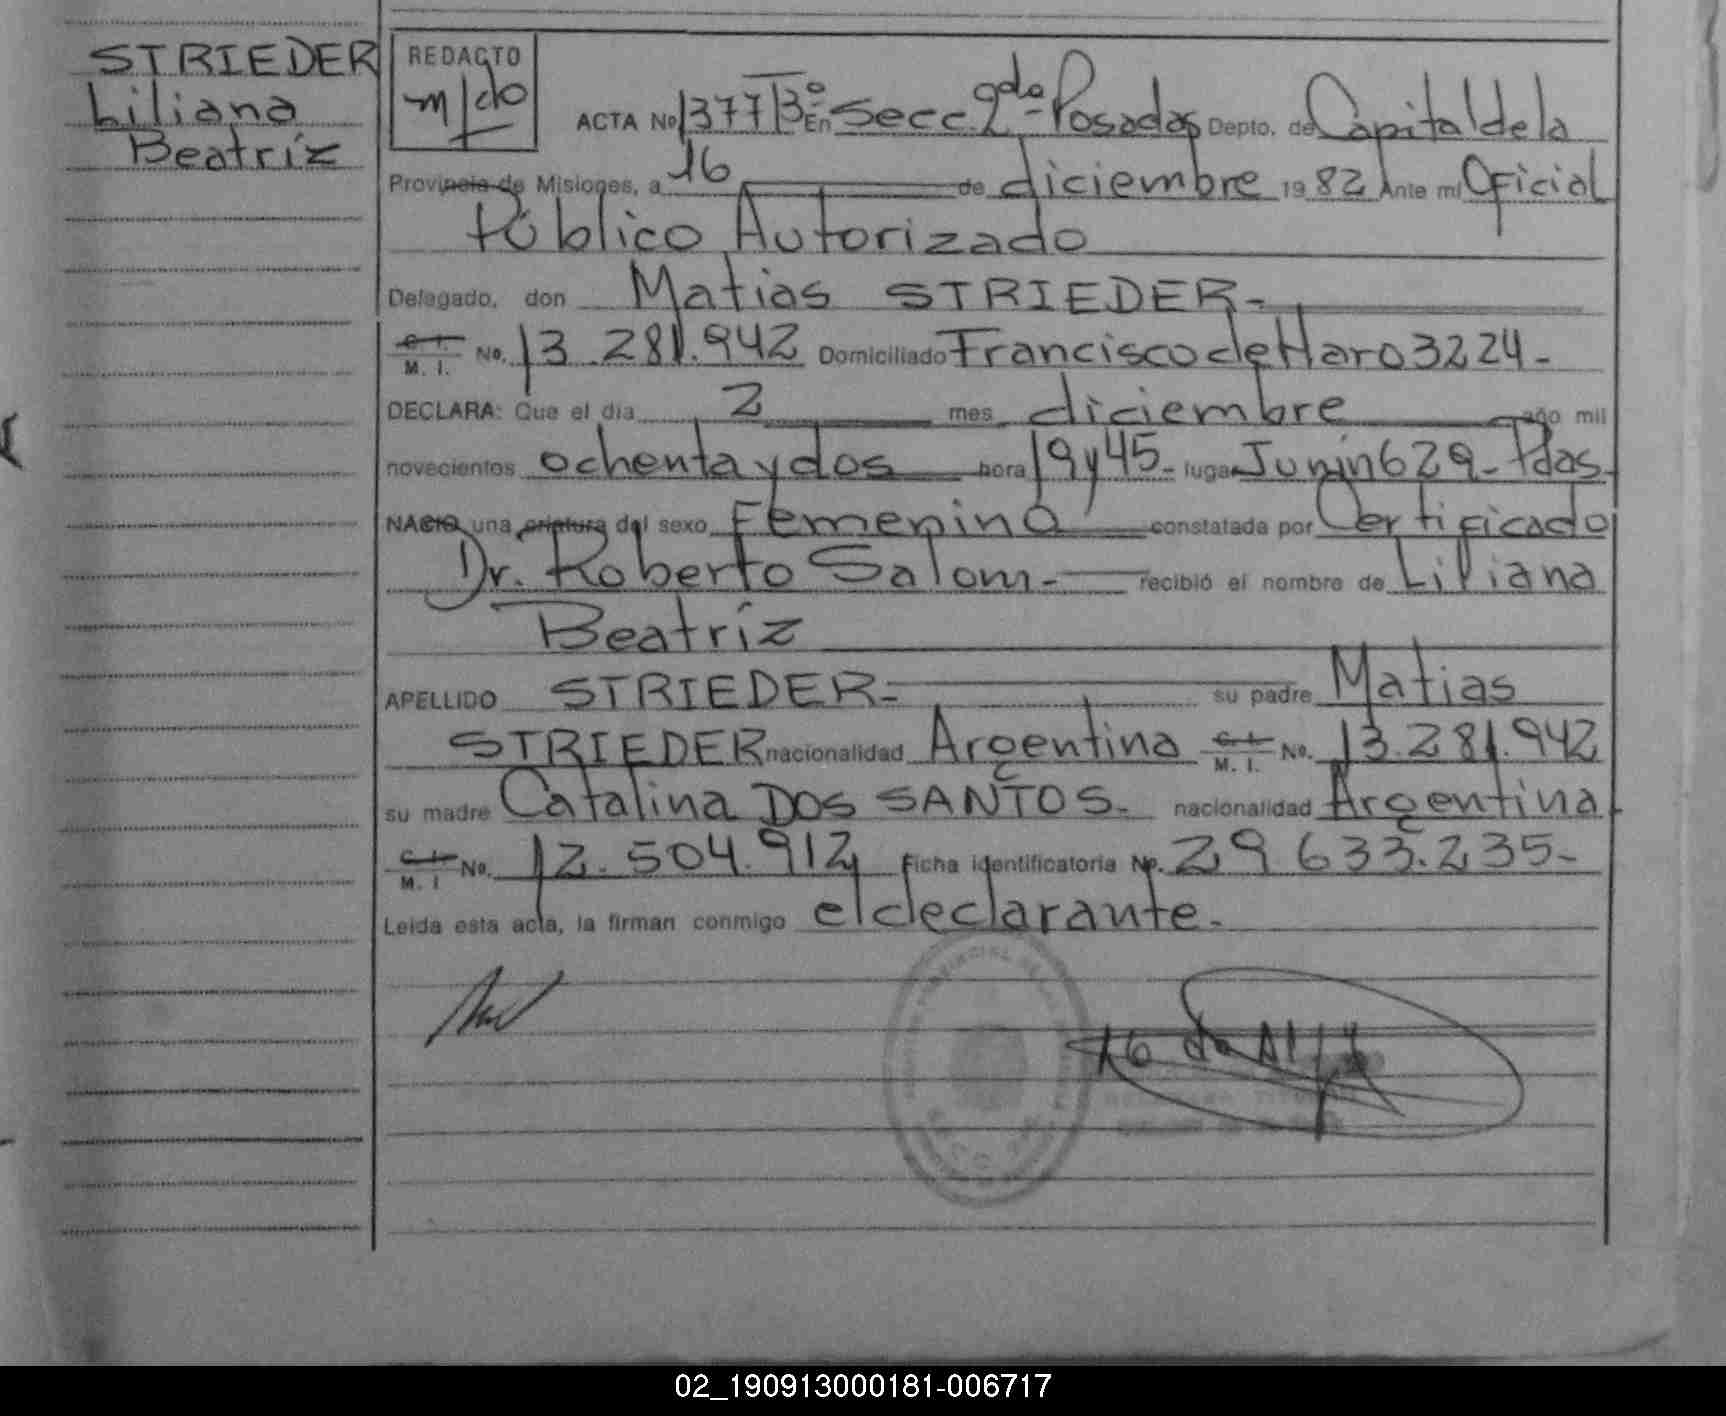 STRIEDER
Liliana
Beatríz
REDACTO
ACTA No 1377 Tº 3º En Secc. 2da Posadas Depto. de Capital de la
Provincia de Misiones, a 16 de diciembre 1982 Ante mi Oficial
Público Autorizado
Delegado, don Matias STRIEDER-
C. I.
M. I. No. 13.281.942 Domiciliado Francisco de Haro 3224-
DECLARA: Que el día 2 mes diciembre año mil
novecientos ochenta y dos hora 19 y 45- lugar Junin 629- Pdas-
NACIO una criatura del sexo Femenino constatada por Certificado
Dr. Roberto Salom- recibió el nombre de Liliana
Beatríz
APELLIDO STRIEDER- su padre Matias
STRIEDER nacionalidad Argentina C. I.
M. I. No. 13.281.942
su madre Catalina DOS SANTOS- nacionalidad Argentina
C. I.
M. I No. 12.504.912 Ficha identificatoria No. 29.633.235-
Leída esta acta, la firman conmigo el declarante-
02_190913000181-006717